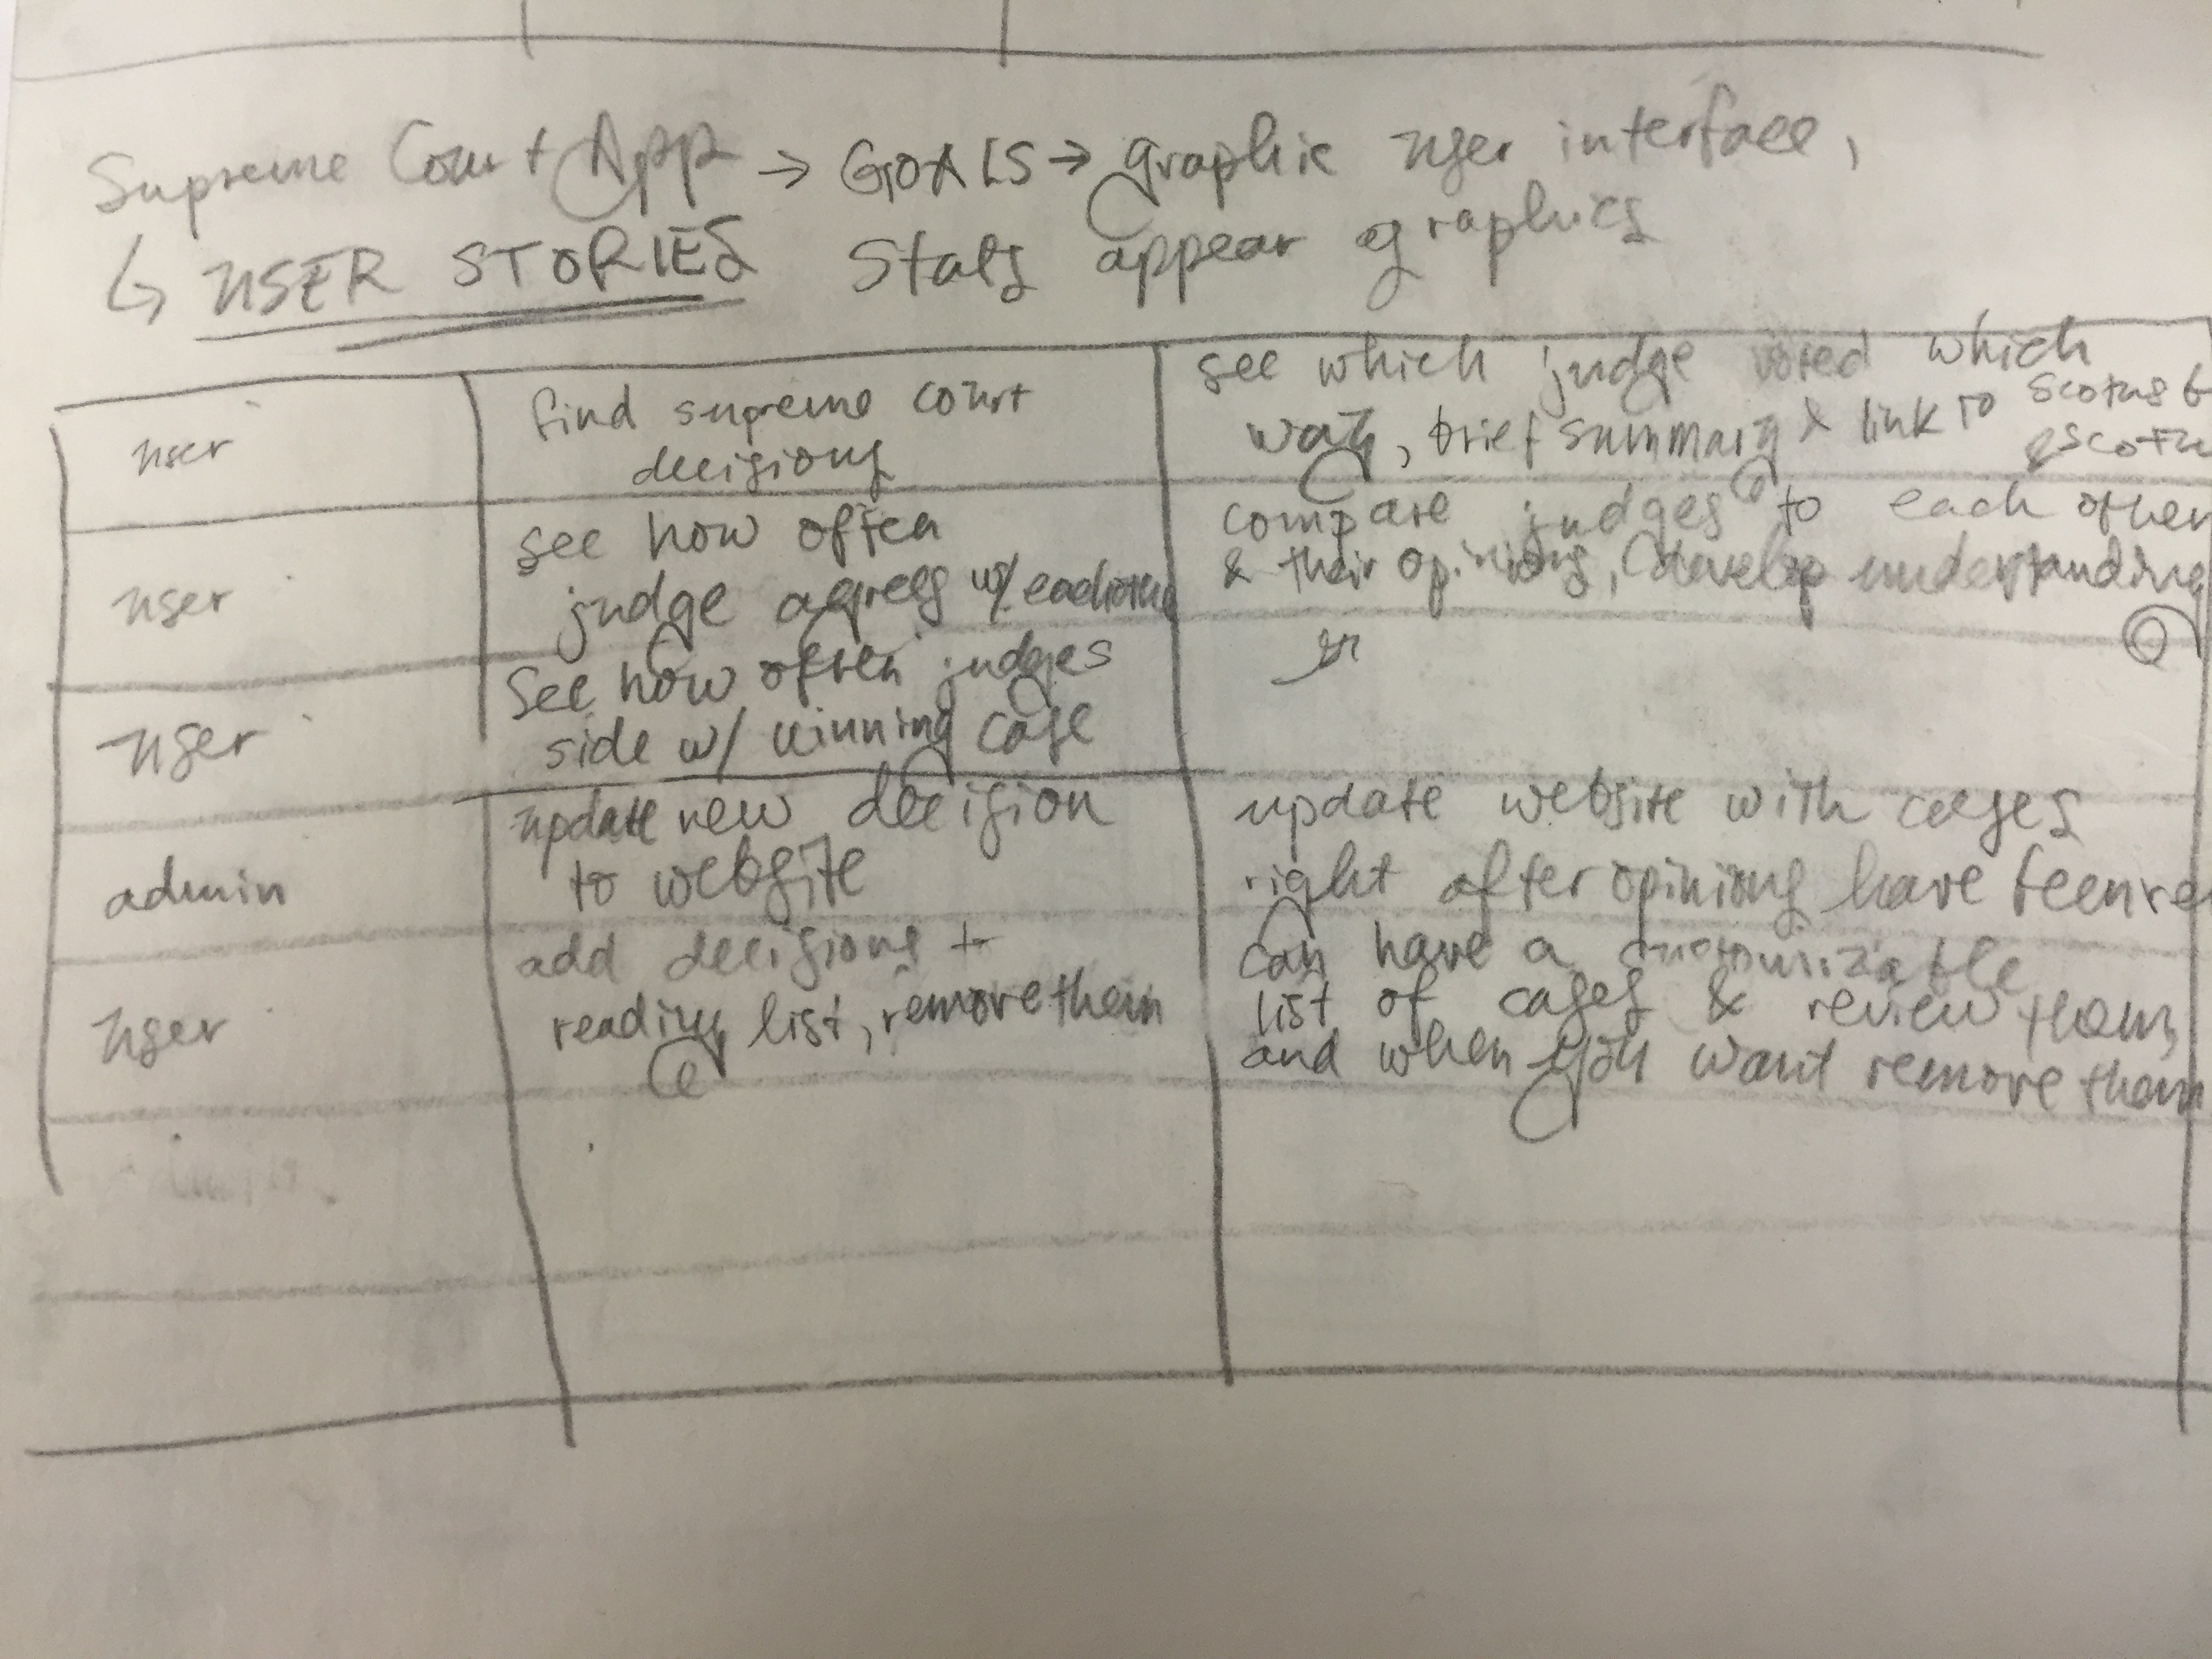 Supreme Court App → GOALS → graphic user interface,
↳ USER STORIES stats appear as graphics
user
find supreme court
decisions
see which judge voted which
way, brief summary & link to
scotusb
user
see how often
judge agrees w/ eachother
compare judges to each other
& their opinions, develop understanding
user
See how often judges
side w/ winning case
admin
update new decision
to website
update website with cases
right after opinions have
user
add decisions to
reading list, remove them
can have a customizable
list of cases & review them
and when you want remove them